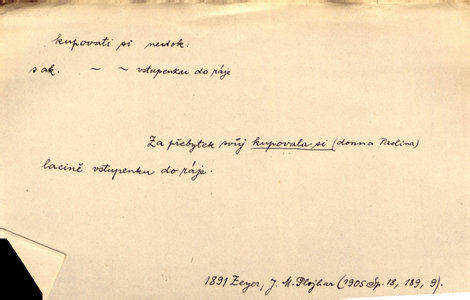 kupovati si nedok.
s ak. ~ ~ vstupenku do ráje
Za přebytek svůj kupovala si (donna Paolina)
lacině vstupenku do ráje.
1891 Zeyer, J. M. Plojhar (1905 Sp. 18, 189, 9).